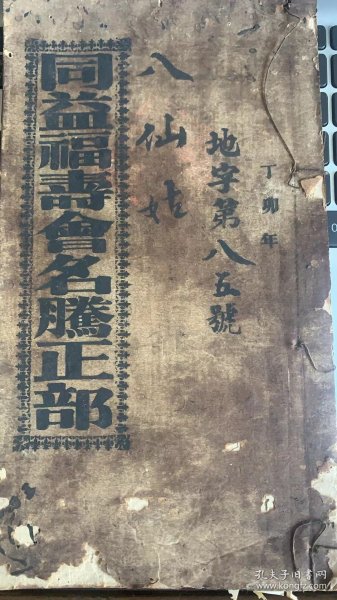 丁卯年
地字第八五號
八仙姑
同益福壽會名騰正部
孔夫子旧书网
www.kongfz.com